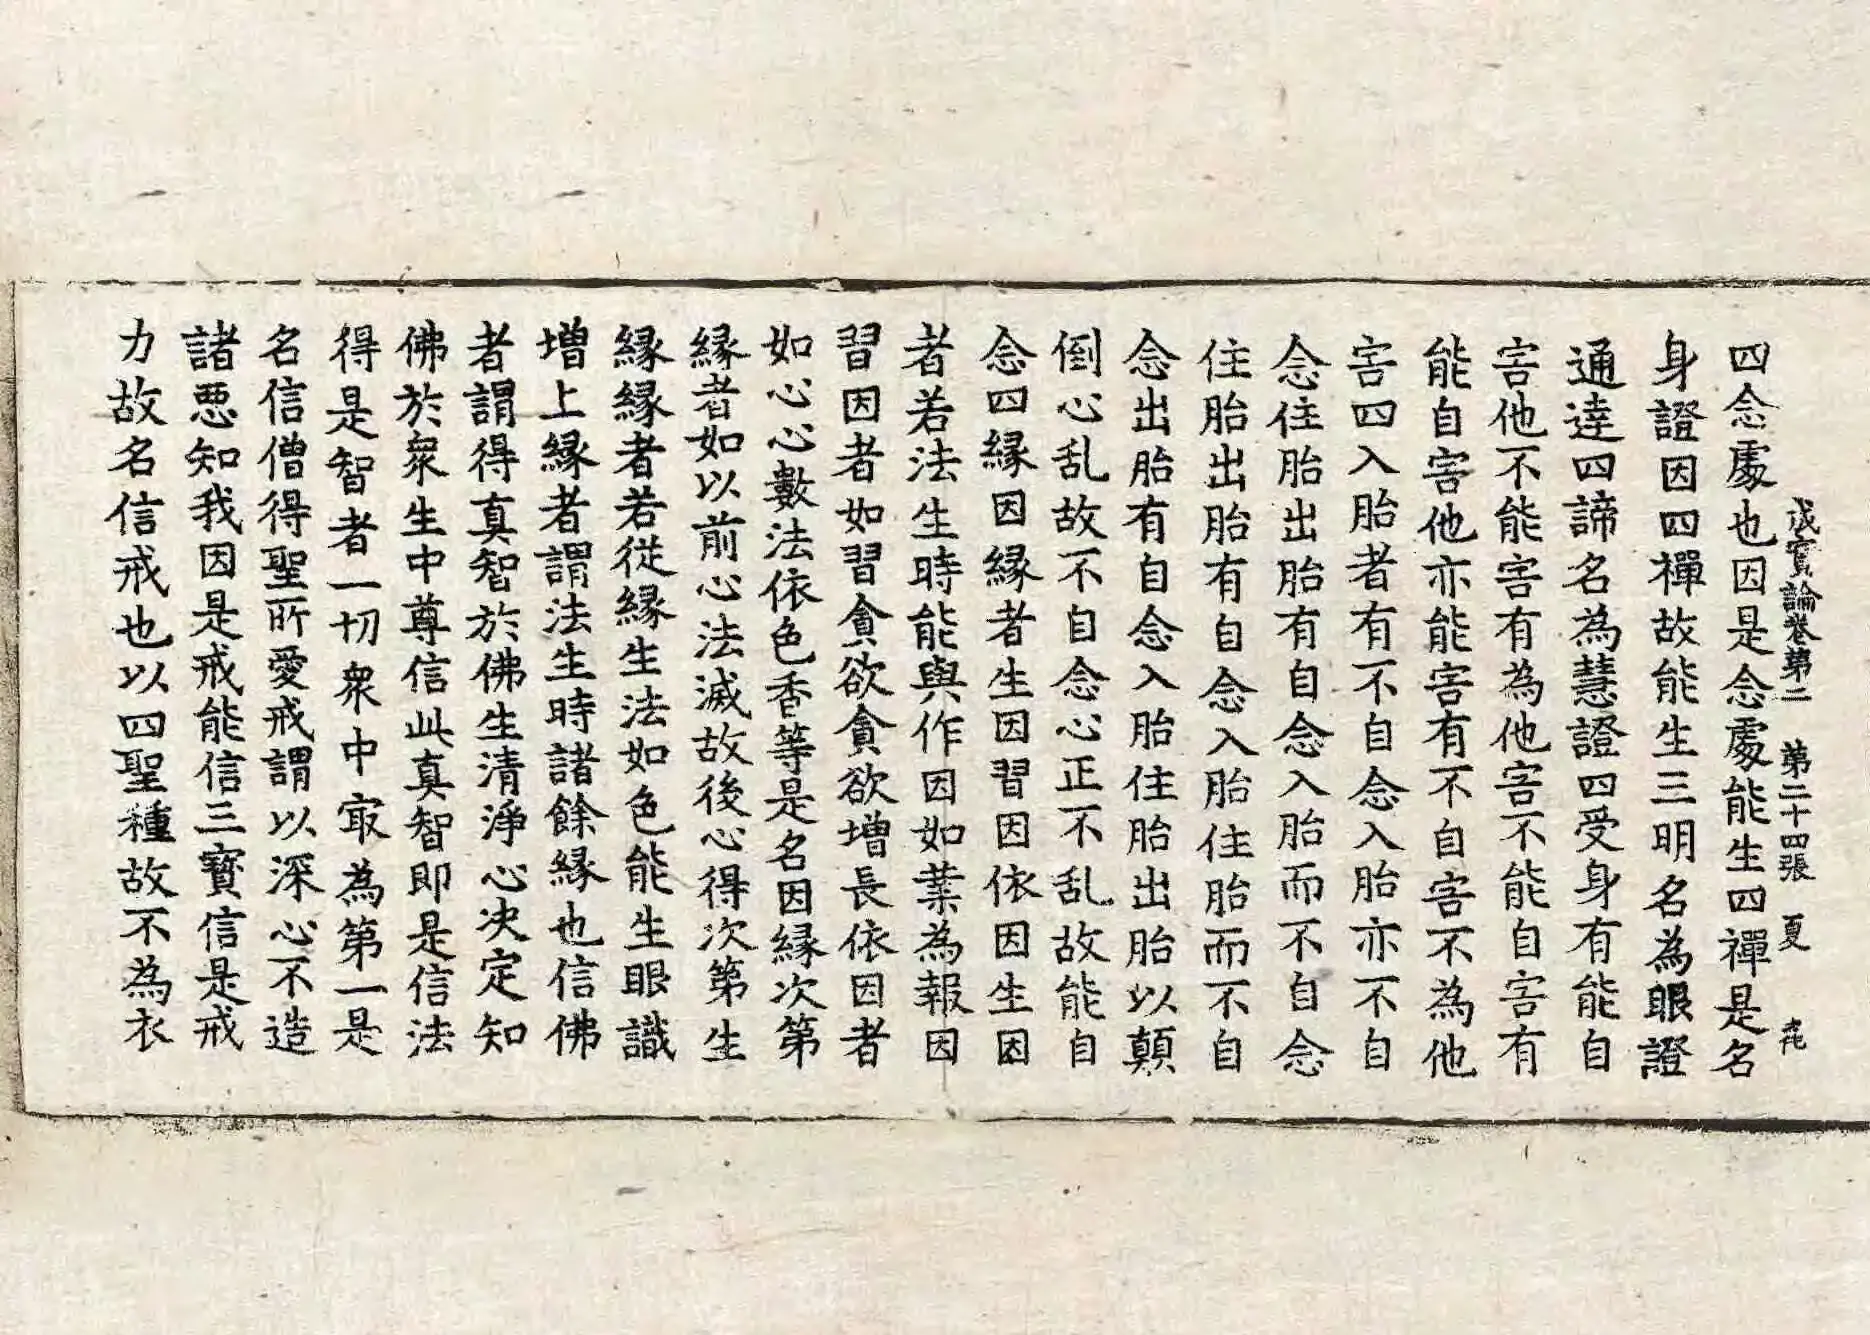 成實論卷第二　第二十四張　夏
四念處也因是念處能生四禪是名
身證因四禪故能生三明名為眼證
通達四諦名為慧證四受身有能自
害他不能害有為他害不能自害有
能自害他亦能害有不自害不為他
害四入胎者有不自念入胎亦不自
念住胎出胎有自念入胎而不自念
住胎出胎有自念入胎住胎而不自
念出胎有自念入胎住胎出胎以顛
倒心乱故不自念心正不乱故能自
念四緣因緣者生因習因依因生因
者若法生時能與作因如業為報因
習因者如習貪欲貪欲增長依因者
如心心數法依色香等是名因緣次第
緣者如以前心法滅故後心得次第生
緣緣者若從緣生法如色能生眼識
增上緣者謂法生時諸餘緣也信佛
者謂得真智於佛生清淨心決定知
佛於衆生中尊信此真智即是信法
得是智者一切衆中㝡為第一是
名信僧得聖所愛戒謂以深心不造
諸惡知我因是戒能信三寶信是戒
力故名信戒也以四聖種故不為衣